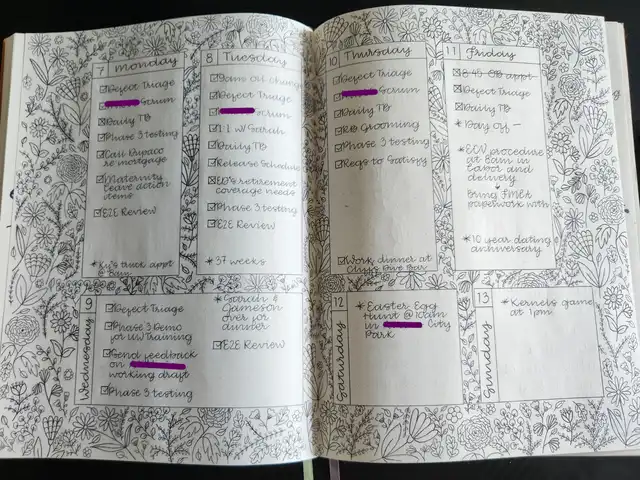 7 Monday
Defect Triage
Scrum
Daily TB
Phase 3 testing
Call
re mortgage
Maternity
leave action
items
E2E Review
truck appt
8am
8 Tuesday
9am Oil change
Defect Triage
Scrum
1:1 w/ Sarah
Daily TB
Release Schedule
ED's retirement
coverage needs
Phase 3 testing
E2E Review
* 37 weeks
9 Wednesday
Defect Triage
Phase 3 Demo
for UW Training
Send feedback
on
working draft
Phase 3 testing
&
Gameson
over for
dinner
E2E Review
10 Thursday
Defect Triage
Scrum
Daily TB
Grooming
Phase 3 testing
Reqs to Satisfy
Work dinner at
Dive Bar
11 Friday
8:45 OB appt
Defect Triage
Daily TB
* Day Off -
* ECV procedure
at 8am in
Labor and
delivery
↓
Bring FMLA
paperwork with
* 10 year dating
anniversary
12
Saturday
* Easter Egg
Hunt @ 10am
in City
Park
13
Sunday
* Kernels game
at 1pm